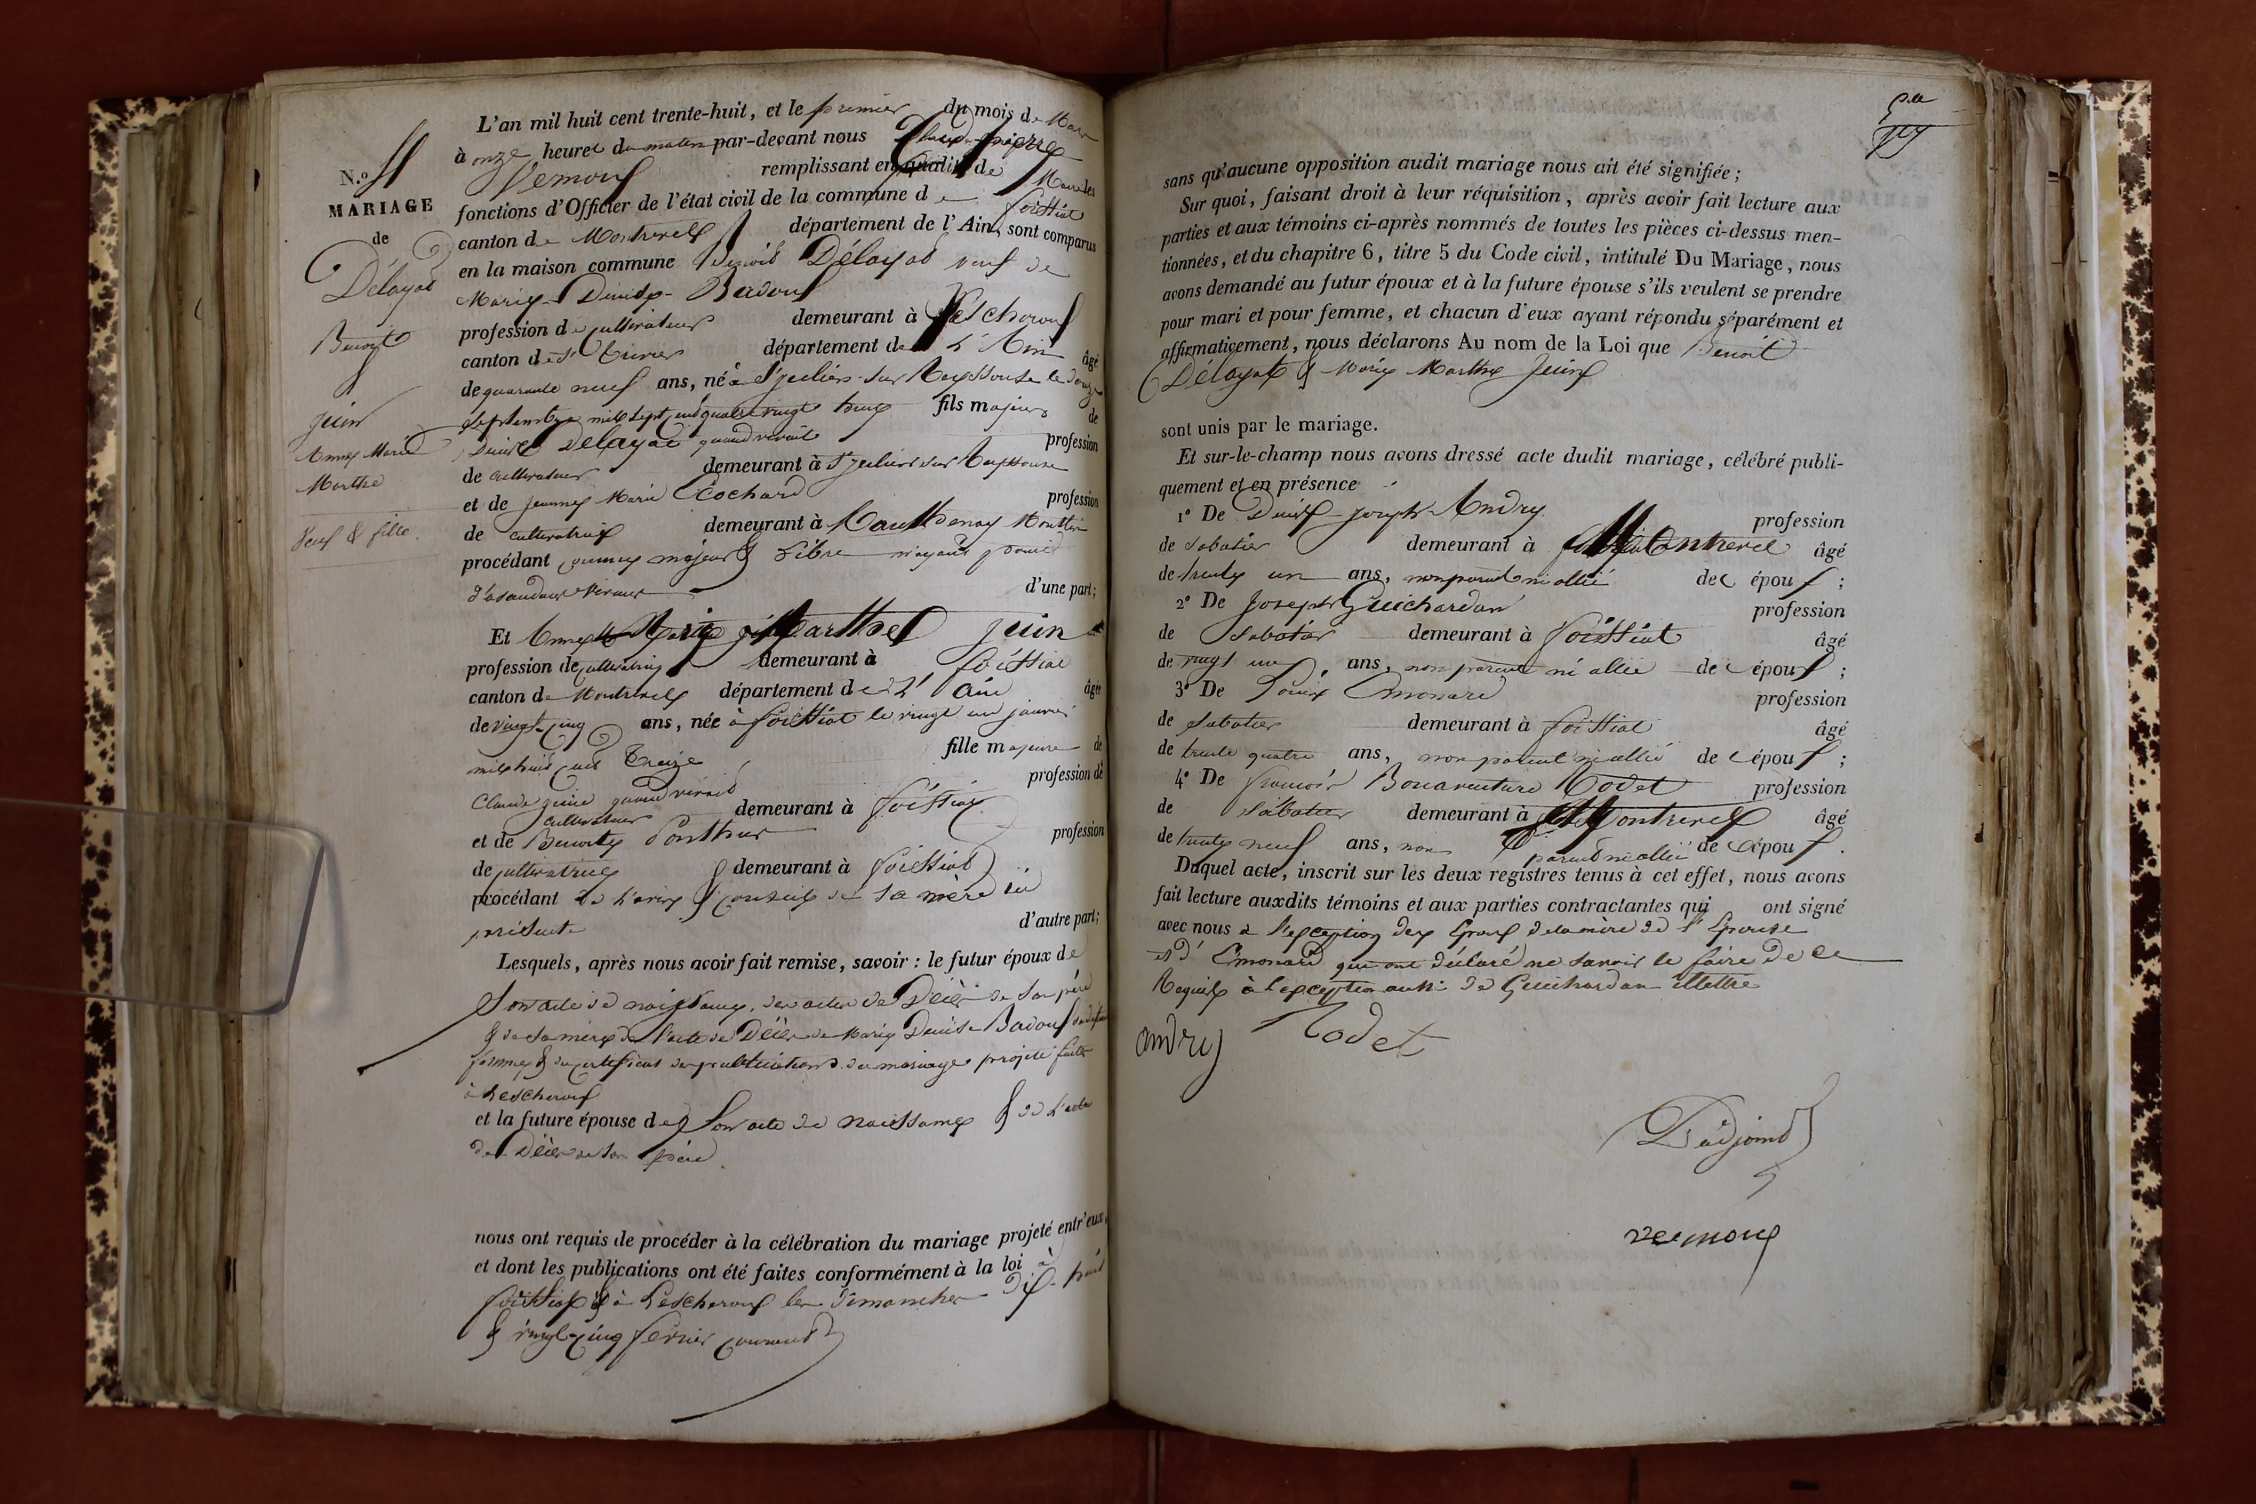 L'an mil huit cent trente-huit, et le premier du mois de Mars
à onze heures du matin par-devant nous Claude-Pierre
remplissant en qualité de Maire les
fonctions d'Officier de l'état civil de la commune de foissiat
canton de Montrevel département de l'Ain, sont comparus
en la maison commune Benoit Délayat veuf de
Marie Denise Badoux
profession de cultivateur demeurant à Lescheroux
canton de St Trivier département de L'Ain âgé
de quarante neuf ans, né à St julien sur Reyssouse le douze
septembre mil sept cent quatre vingt huit fils majeur de
Denis Delayat quand vivait profession
de cultivateur demeurant à St julien sur Reyssouse
et de jeanne Marie Cochard profession
de cultivatrice demeurant à
procédant comme majeur & Libre n'ayant point
d'ascendans vivans d'une part;
Et Anne Marie Marthe juin
profession de cultivatrice demeurant à foissiat
canton de Montrevel département de L'Ain âgée
de vingt-cinq ans, née à foissiat le vingt un janvier
mil huit cent treize fille majeure de
Claude juin quand vivait profession de
cultivateur demeurant à foissiat
et de Benoite Ponthus profession
de cultivatrice demeurant à foissiat
procédant de l'avis & conseil de sa mère ici
présente d'autre part;
Lesquels, après nous avoir fait remise, savoir: le futur époux de
Son acte de naissance, des actes de Décès de son père
& de sa mère de l'acte de Décès de Marie Denise Badoux sa défunte
femme & du certificat des publications du mariage projeté faites
à Lescheroux
et la future épouse de Son acte de naissance & de l'acte
de Décès de son père
nous ont requis de procéder à la célébration du mariage projeté entr'eux,
et dont les publications ont été faites conformément à la loi à
foissiat & à Lescheroux les dimanches dix-huit
& vingt-cinq fevrier courant
N.º 11
MARIAGE
de
Délayat
Benoit
&
juin
Anne Marie
Marthe
Veuf & fille.
sans qu'aucune opposition audit mariage nous ait été signifiée;
Sur quoi, faisant droit à leur réquisition, après avoir fait lecture aux
parties et aux témoins ci-après nommés de toutes les pièces ci-dessus men-
tionnées, et du chapitre 6, titre 5 du Code civil, intitulé Du Mariage, nous
avons demandé au futur époux et à la future épouse s'ils veulent se prendre
pour mari et pour femme, et chacun d'eux ayant répondu séparément et
affirmativement, nous déclarons Au nom de la Loi que Benoit
Délayat & Marie Marthe Juin
sont unis par le mariage.
Et sur-le-champ nous avons dressé acte dudit mariage, célébré publi-
quement et en présence
1º De Denis Joseph Andry profession
de sabotier demeurant à Montrevel âgé
de trente un ans, non parent ni allié des époux;
2º De Joseph Guichardan profession
de sabotier demeurant à foissiat âgé
de vingt un ans, non parent ni allié des époux;
3º De Louis Emonard profession
de sabotier demeurant à foissiat âgé
de trente quatre ans, non parent ni allié des époux;
4º De françois Bonaventure Rodet profession
de sabotier demeurant à Montrevel âgé
de trente neuf ans, non parent ni allié des époux.
Duquel acte, inscrit sur les deux registres tenus à cet effet, nous avons
fait lecture auxdits témoins et aux parties contractantes qui ont signé
avec nous à l'exception des époux de la mère de l'Epouse
et d'Emonard qui ont déclaré ne savoir le faire de ce
Requis à l'exception aussi de Guichardan illettré
andry Rodet
L'adjoint